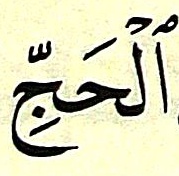 ٱلْحَجِّ